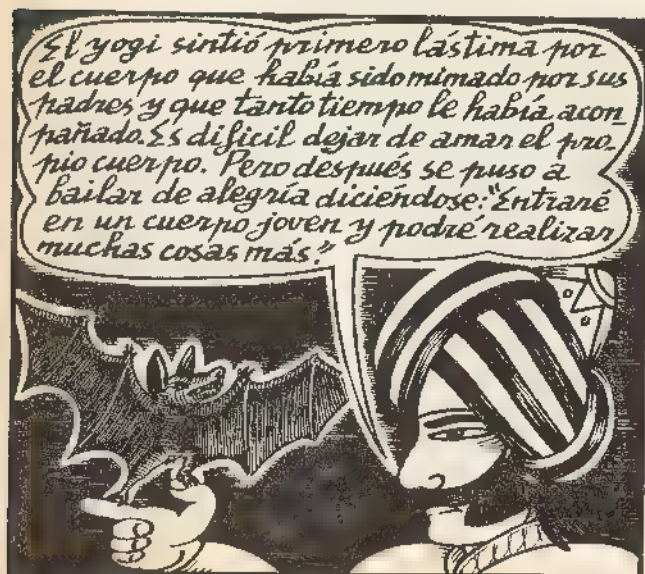 El yogi sintió primero lástima por
el cuerpo que había sido mimado por sus
padres y que tanto tiempo le había acon
pañado. Es difícil dejar de amar el pro-
pio cuerpo. Pero después se puso a
bailar de alegría diciéndose: "Entraré
en un cuerpo joven y podré realizar
muchas cosas más."